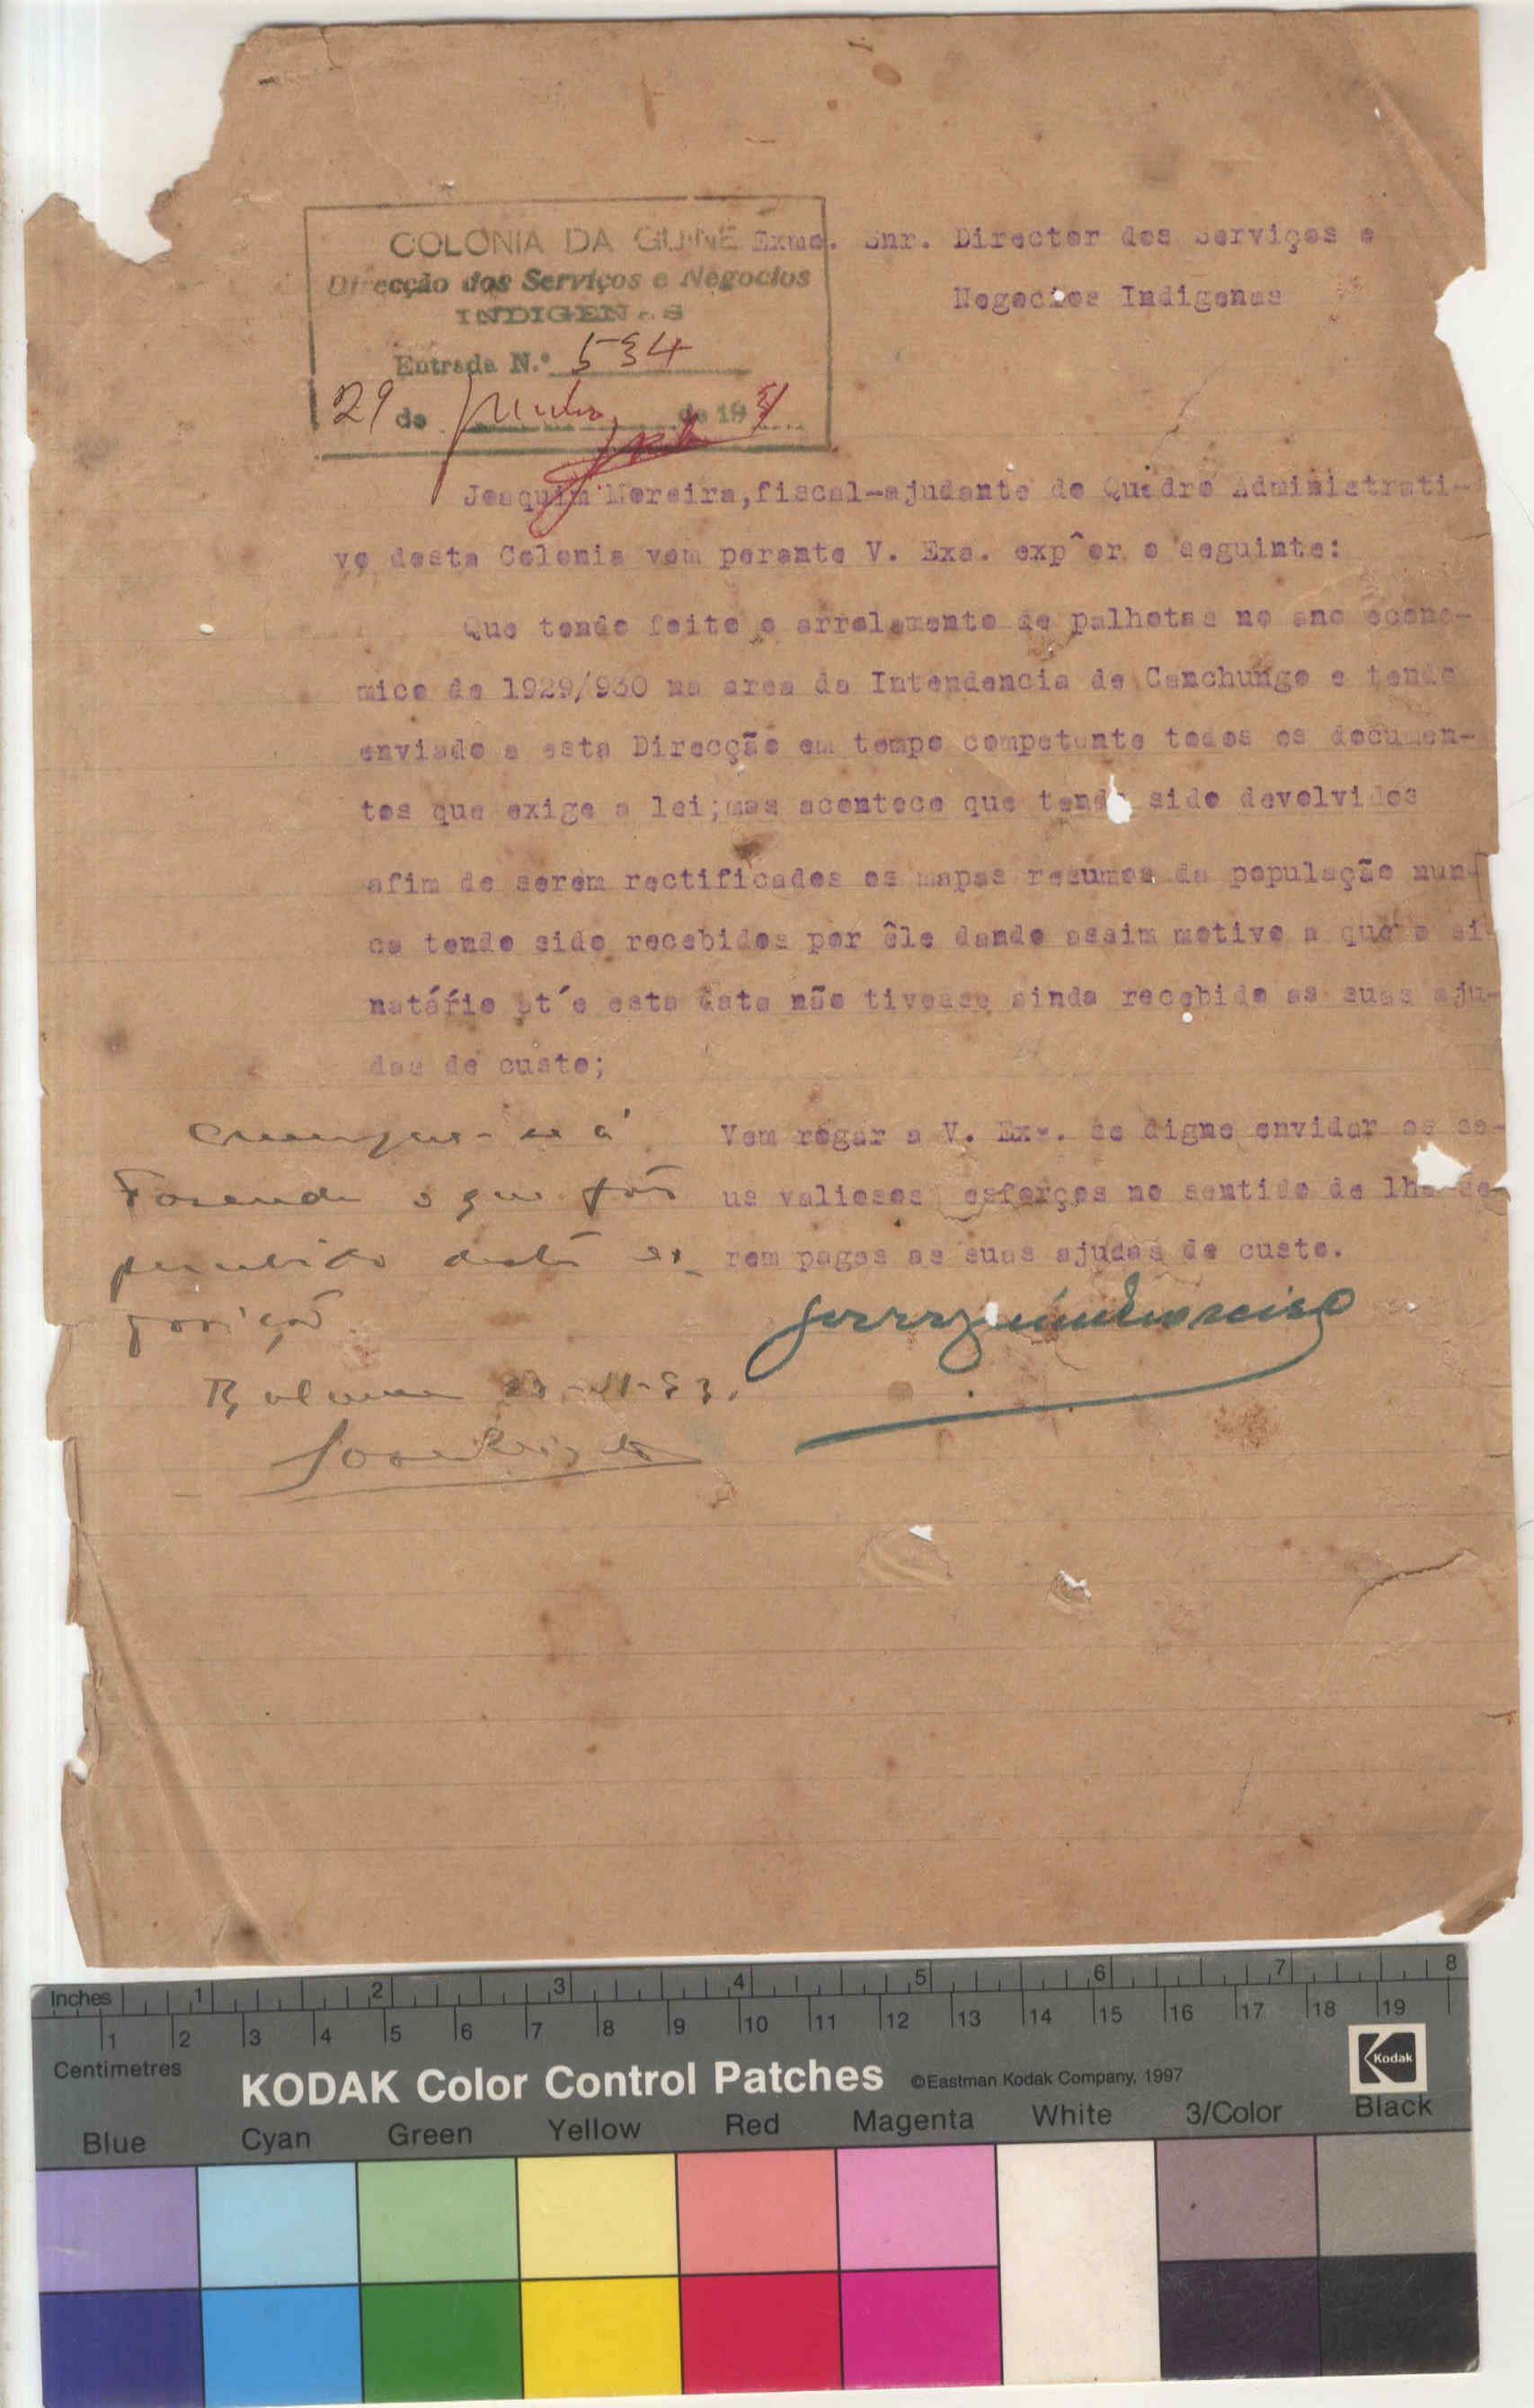 COLONIA DA GUINÉ
Direcção dos Serviços e Negocios
INDIGENAS
Entrada N.º 534
29 de Junho de 1931
Exmo. Snr. Director dos Serviços e
Negocios Indigenas
Joaquim Moreira,fiscal-ajudante do Quadro Administrati-
vo desta Colonia vem perante V. Exa. exp^or o seguinte:
Que tendo feito o arrolamento de palhotas no ano econo-
mico de 1929/930 na area da Intendencia de Canchungo e tendo
enviado a esta Direcção em tempo competente todos os documen-
tos que exige a lei;mas acontece que tendo sido devolvidos
afim de serem rectificados os mapas resumos da população nun-
ca tendo sido recebidos por êle dando assim motivo a que o si-
natário at´e esta data não tivesse ainda recebido as suas aju-
das de custo;
Vem rogar a V. Exa. se digne envidar os se-
us valiosos esforços no sentido de lhe se-
rem pagas as suas ajudas de custo.
Joaquim Moreira
á
Fazenda o que fôr
desta ex-
posição
Bolama
Inches 1 2 3 4 5 6 7 8
1 2 3 4 5 6 7 8 9 10 11 12 13 14 15 16 17 18 19
Centimetres
KODAK Color Control Patches ©Eastman Kodak Company, 1997 Kodak
Blue Cyan Green Yellow Red Magenta White 3/Color Black